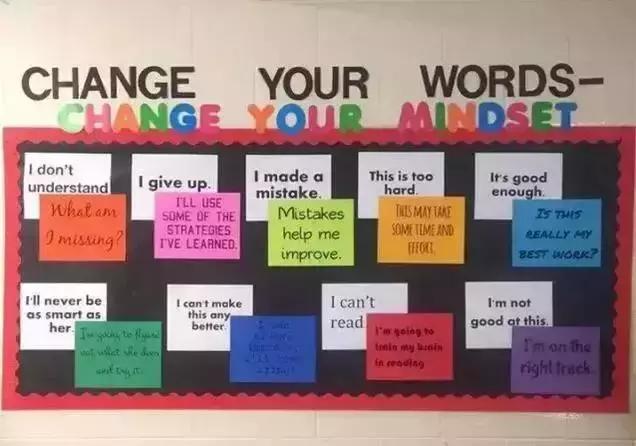 CHANGE YOUR WORDS-
CHANGE YOUR MINDSET
I don't
understand
What am
I missing?
I give up.
I'LL USE
SOME OF THE
STRATEGIES
I'VE LEARNED.
I made a
mistake.
Mistakes
help me
improve.
This is too
hard.
THIS MAY TAKE
SOME TIME AND
EFFORT.
It's good
enough.
IS THIS
REALLY MY
BEST WORK?
I'll never be
as smart as
her.
I'm going to figure
out what she does
and try it.
I can't make
this any
better.
I can't
read.
I'm going to
train my brain
in reading
I'm not
good at this.
I'm on the
right track.